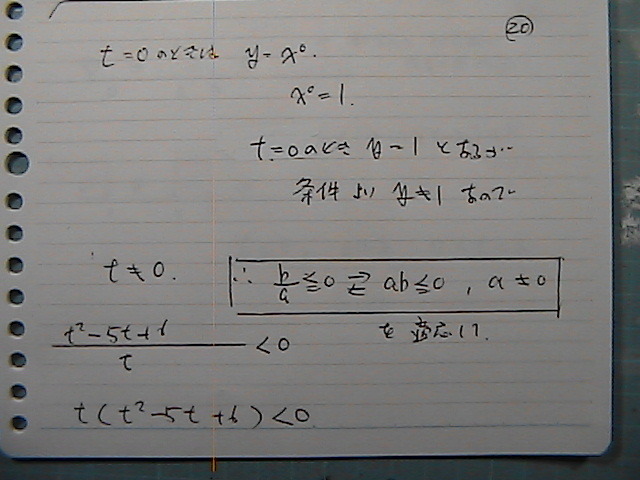 ⑳
t=0のときは y=x⁰.
x⁰=1.
t=0のとき y=1 となるが…
条件より y≠1 なので
t≠0.
∴ b/a≦0 ⇄ ab≦0, a≠0
を適応して.
(t²-5t+6)/t <0
t(t²-5t+6)<0